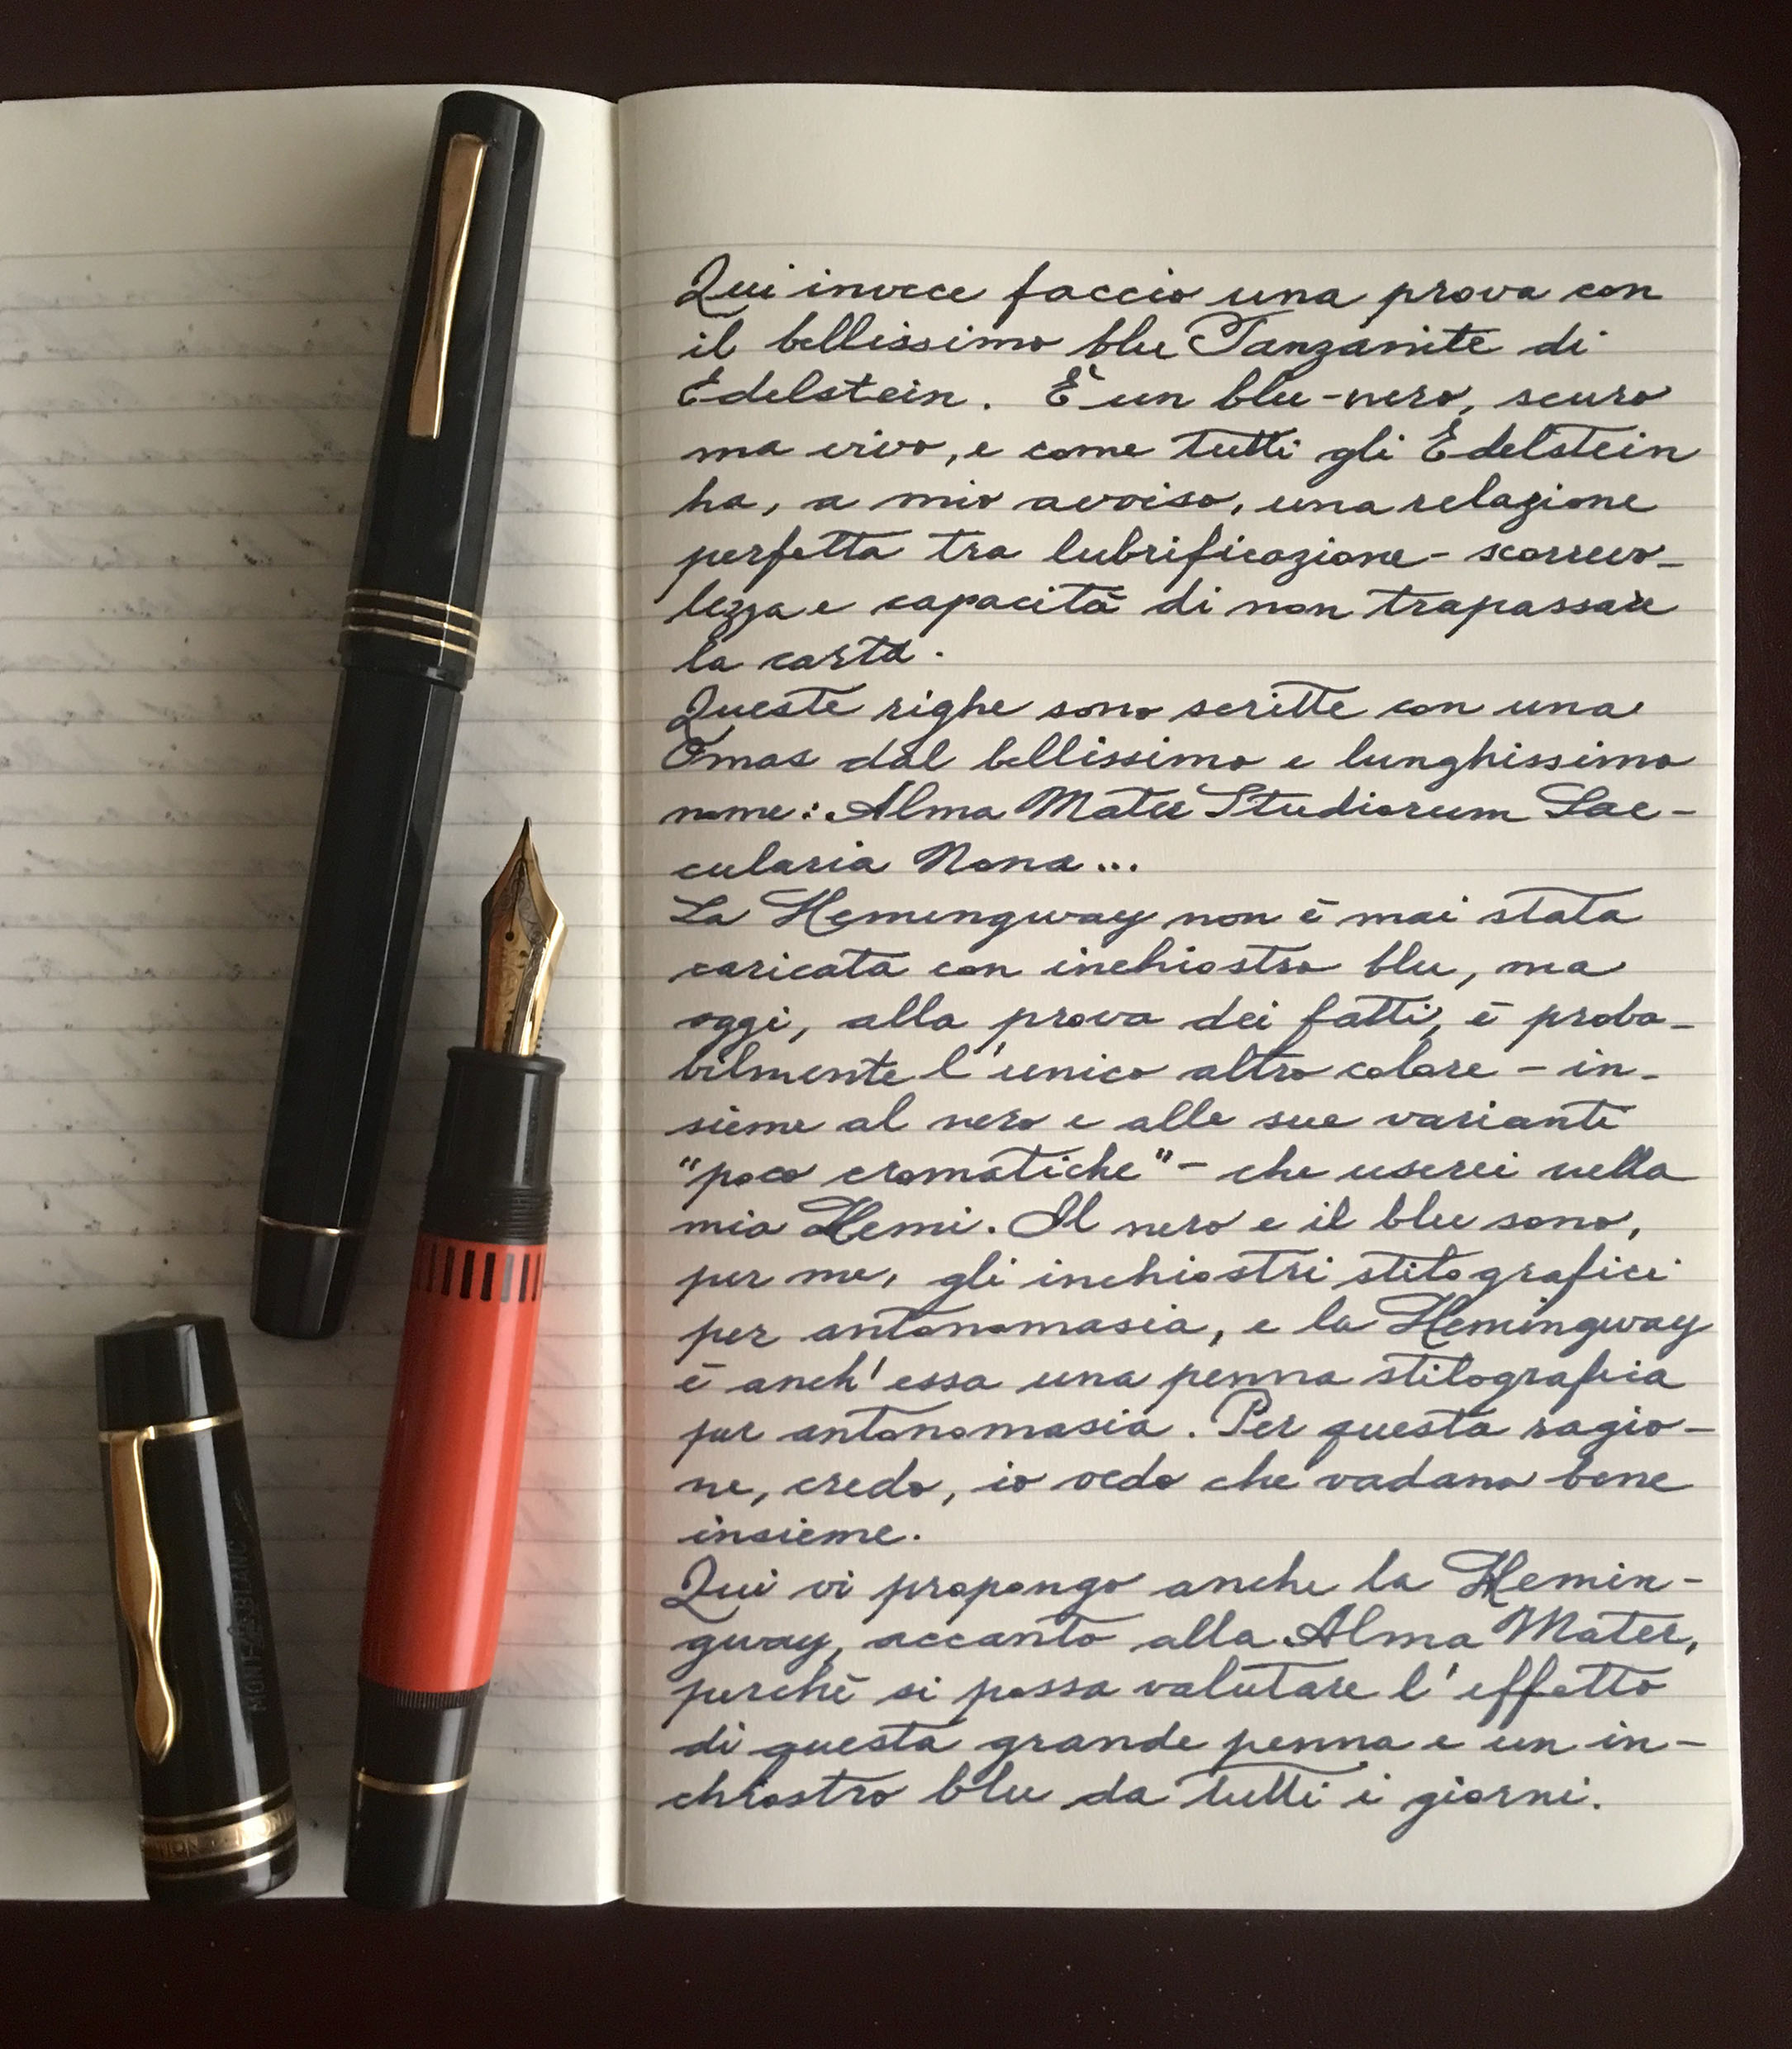 Qui invece faccio una prova con
il bellissimo blu Tanzanite di
Edelstein. È un blu-nero, scuro
ma vivo, e come tutti gli Edelstein
ha, a mio avviso, una relazione
perfetta tra lubrificazione - scorrevo-
lezza e capacità di non trapassare
la carta.
Queste righe sono scritte con una
Omas dal bellissimo e lunghissimo
nome: Alma Mater Studiorum Sae-
cularia Nona...
La Hemingway non è mai stata
caricata con inchiostro blu, ma
oggi, alla prova dei fatti, è proba-
bilmente l'unico altro colore - in-
sieme al nero e alle sue varianti
"poco cromatiche" - che userei nella
mia Hemi. Il nero e il blu sono,
per me, gli inchiostri stilografici
per antonomasia, e la Hemingway
è anch'essa una penna stilografica
per antonomasia. Per questa ragio-
ne, credo, io vedo che vadano bene
insieme.
Qui vi propongo anche la Hemin-
gway, accanto alla Alma Mater,
perchè si possa valutare l'effetto
di questa grande penna e un in-
chiostro blu da tutti i giorni.
MONTBLANC